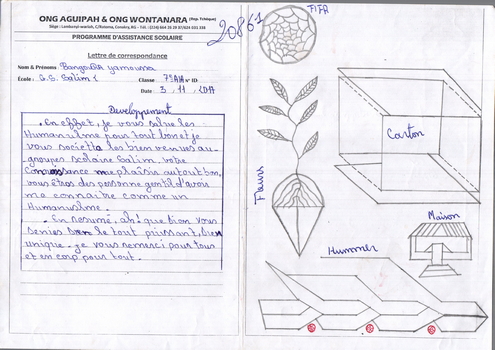 ONG AGUIPAH & ONG WONTANARA (Rep. Tchèque)
PROGRAMME D'ASSISTANCE SCOLAIRE
20861
Lettre de correspondance
Nom & Prénoms : Bangoura yamoussa
École : G.S. Salim 1 Classe : 7°AH n° ID
Date : 3, 11, LDA
Developpement
. En effet, je vous salue les
Humanisme pour tout bon et je
vous societta les bienvenues au
groupes scolaire Salim, votre
me plaisir autout bon,
vous étres des personne gentil d'avoir
me connaitre comme un
Humanisme.
. En resumé, ah! que bien vous
benies de tout puissant, bien
unique. je vous remerci pour tous
et en corp pour tout.
FIFA
Carton
Fleurs
Maison
Hummer